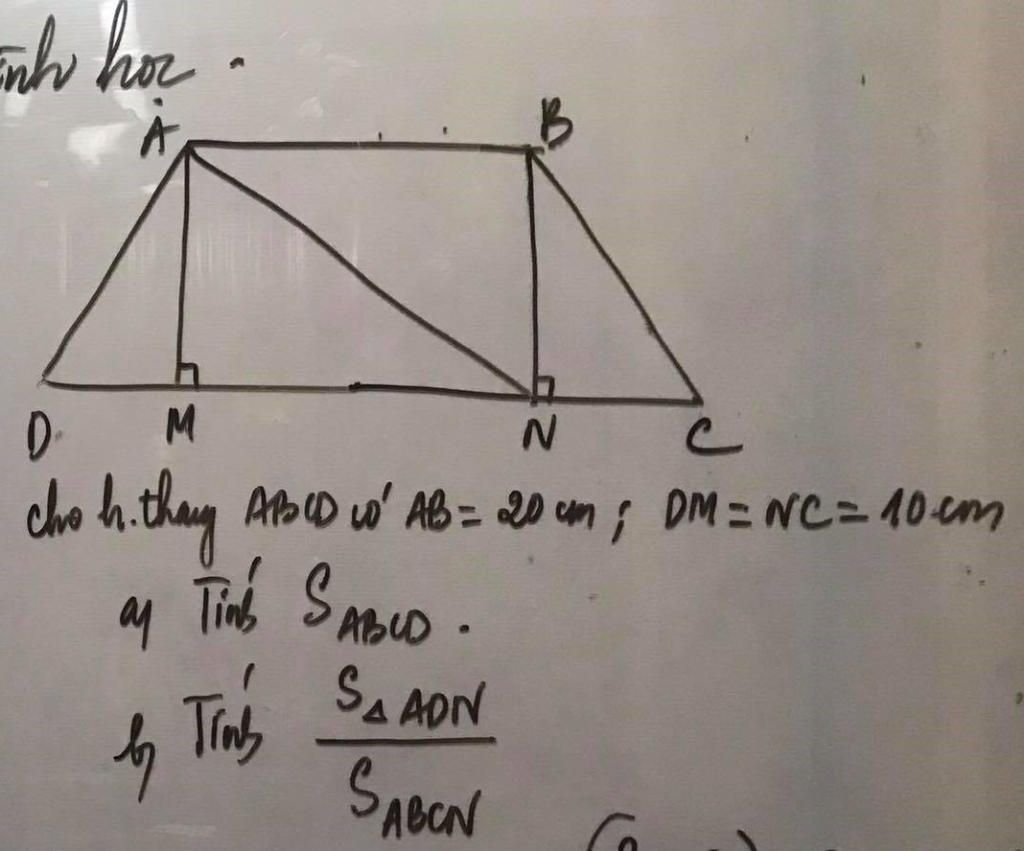 ình học.
A B
D M N C
cho h.thang ABCD có AB = 20 cm ; DM = NC = 10 cm
a) Tính S ABCD.
b) Tính S△ADN
S ABCN